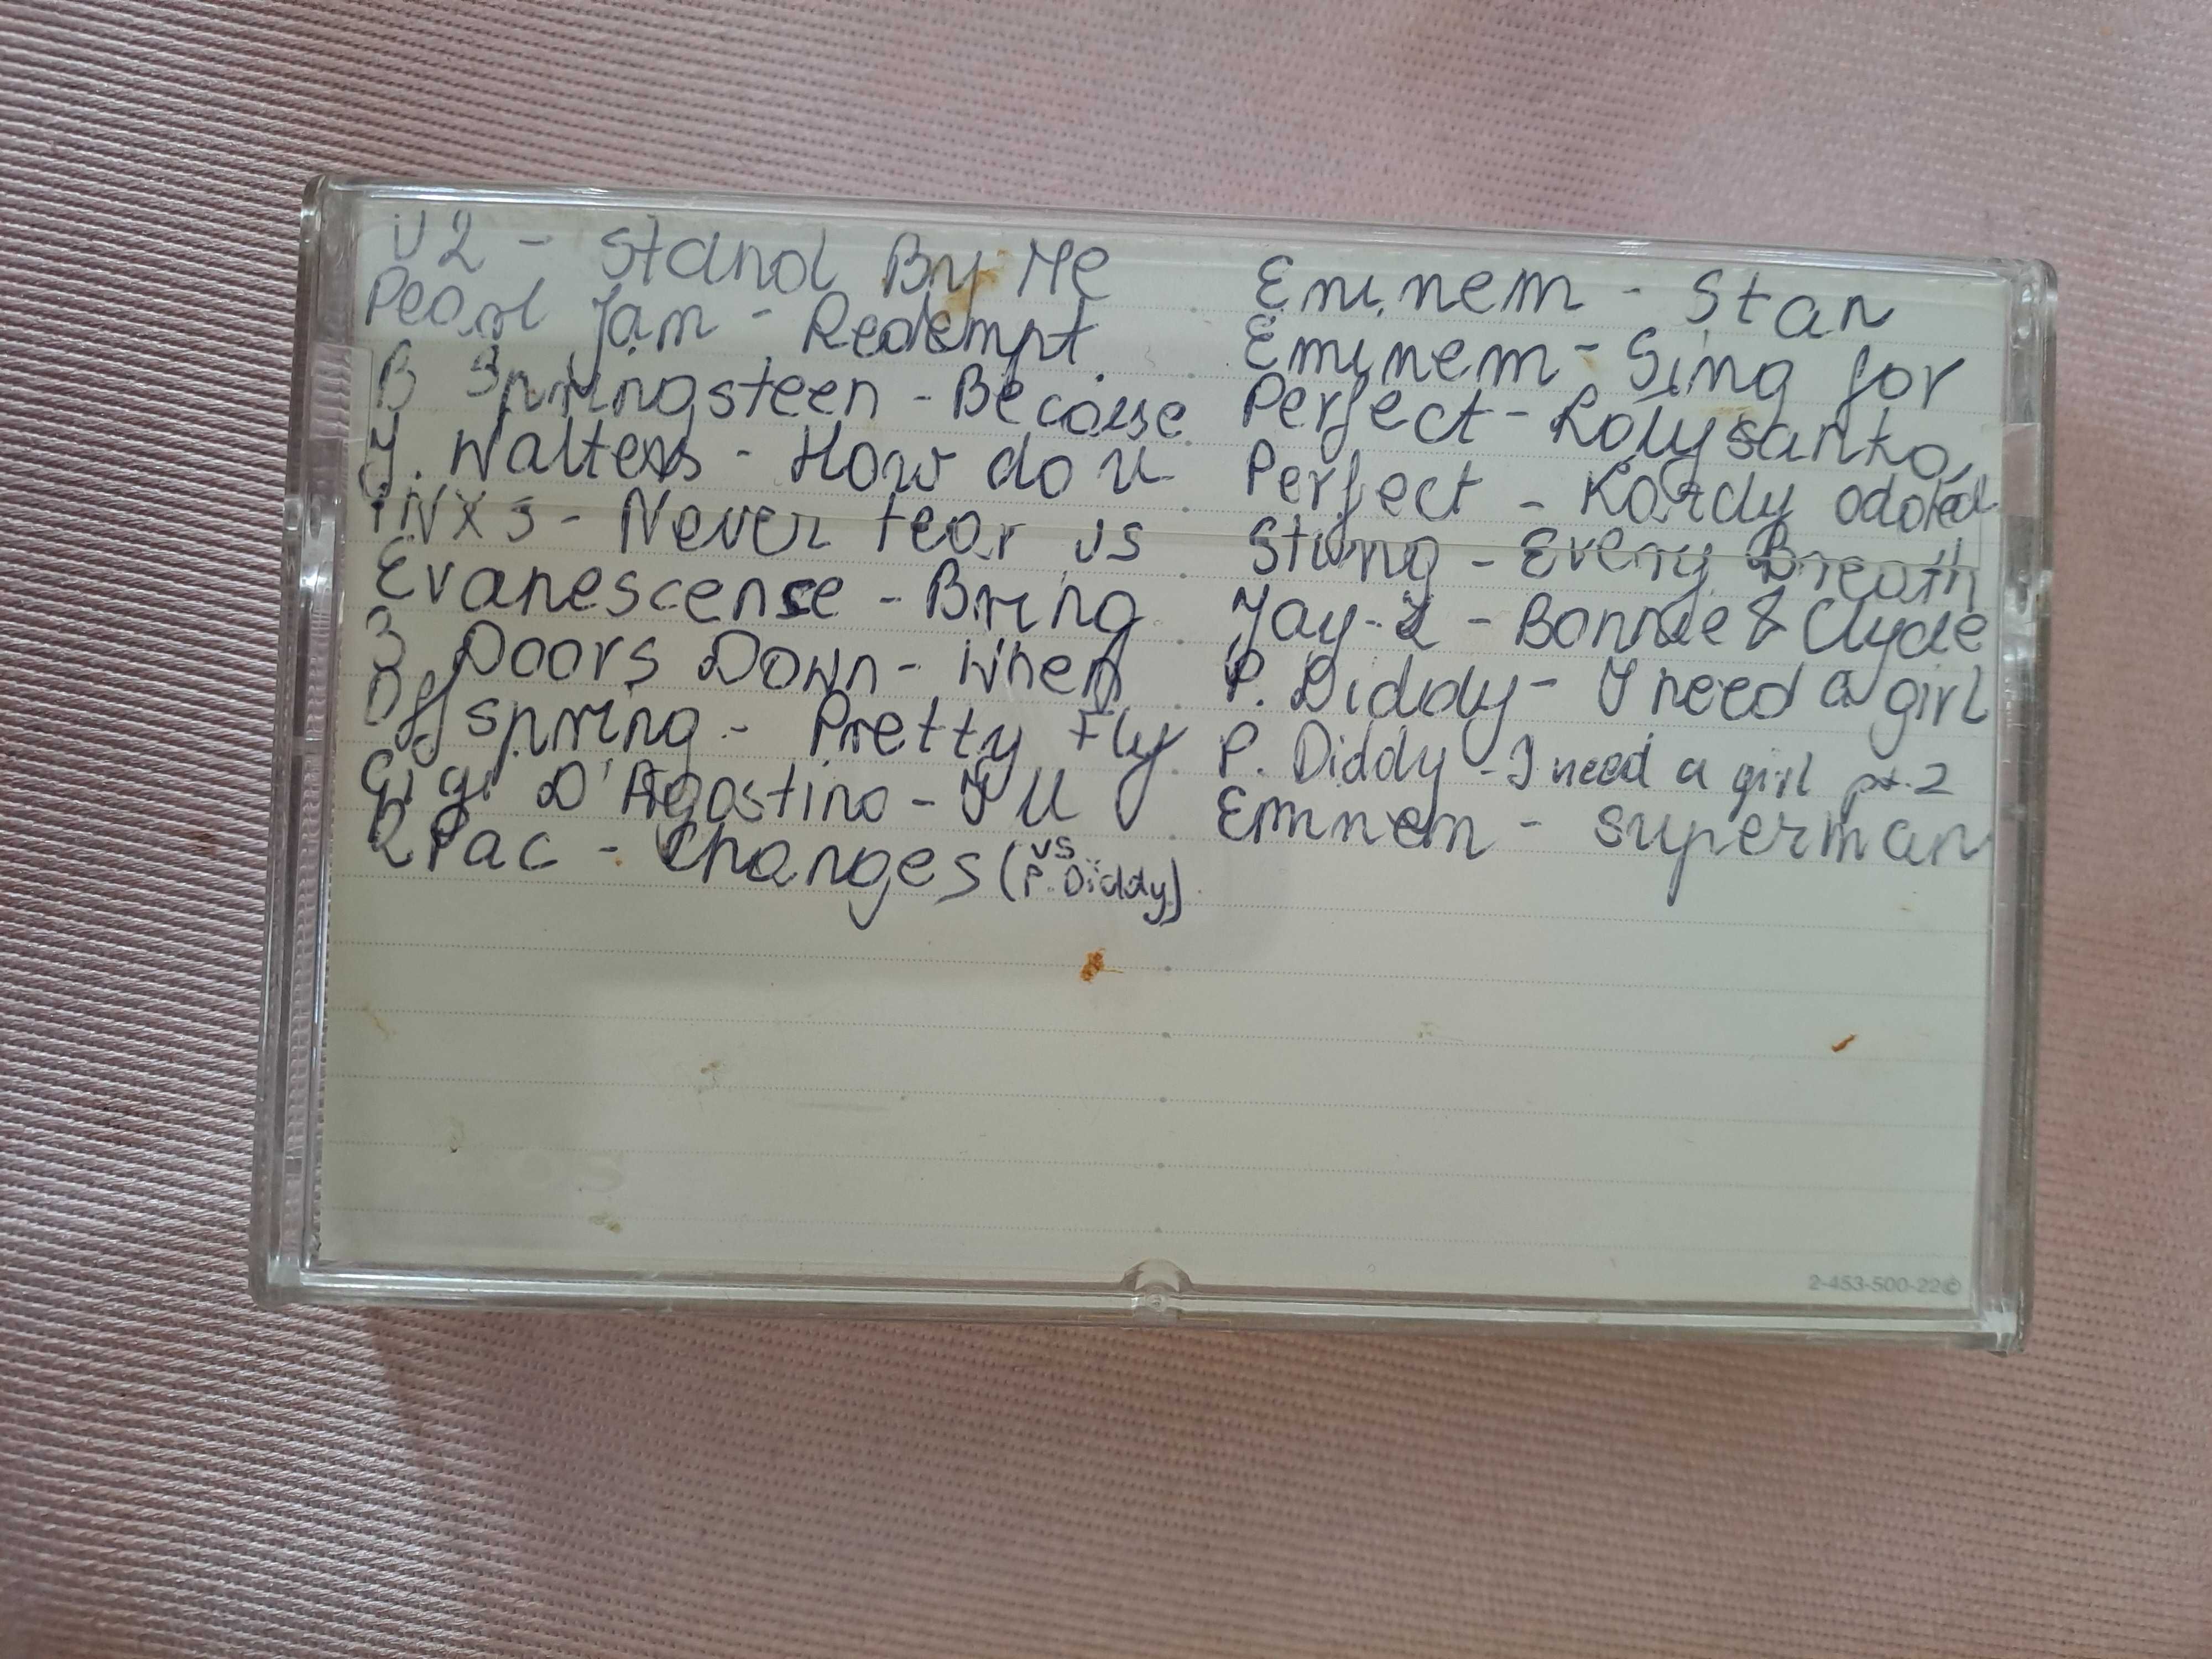 U2 - Stand By Me
Pearl Jam - Redempt.
B Springsteen - Because
J. Walters - How do U
INXS - Never tear us
Evanescence - Bring
3 Doors Down - When
Offspring - Pretty Fly
Gigi D'Agostino - I'll
2Pac - Changes (vs P. Diddy)
Eminem - Stan
Eminem - Sing for
Perfect - Kołysanka
Perfect - Każdy oddech
Sting - Every Breath
Jay-Z - Bonnie & Clyde
P. Diddy - I need a girl
P. Diddy - I need a girl pt. 2
Eminem - Superman
2-453-500-22©